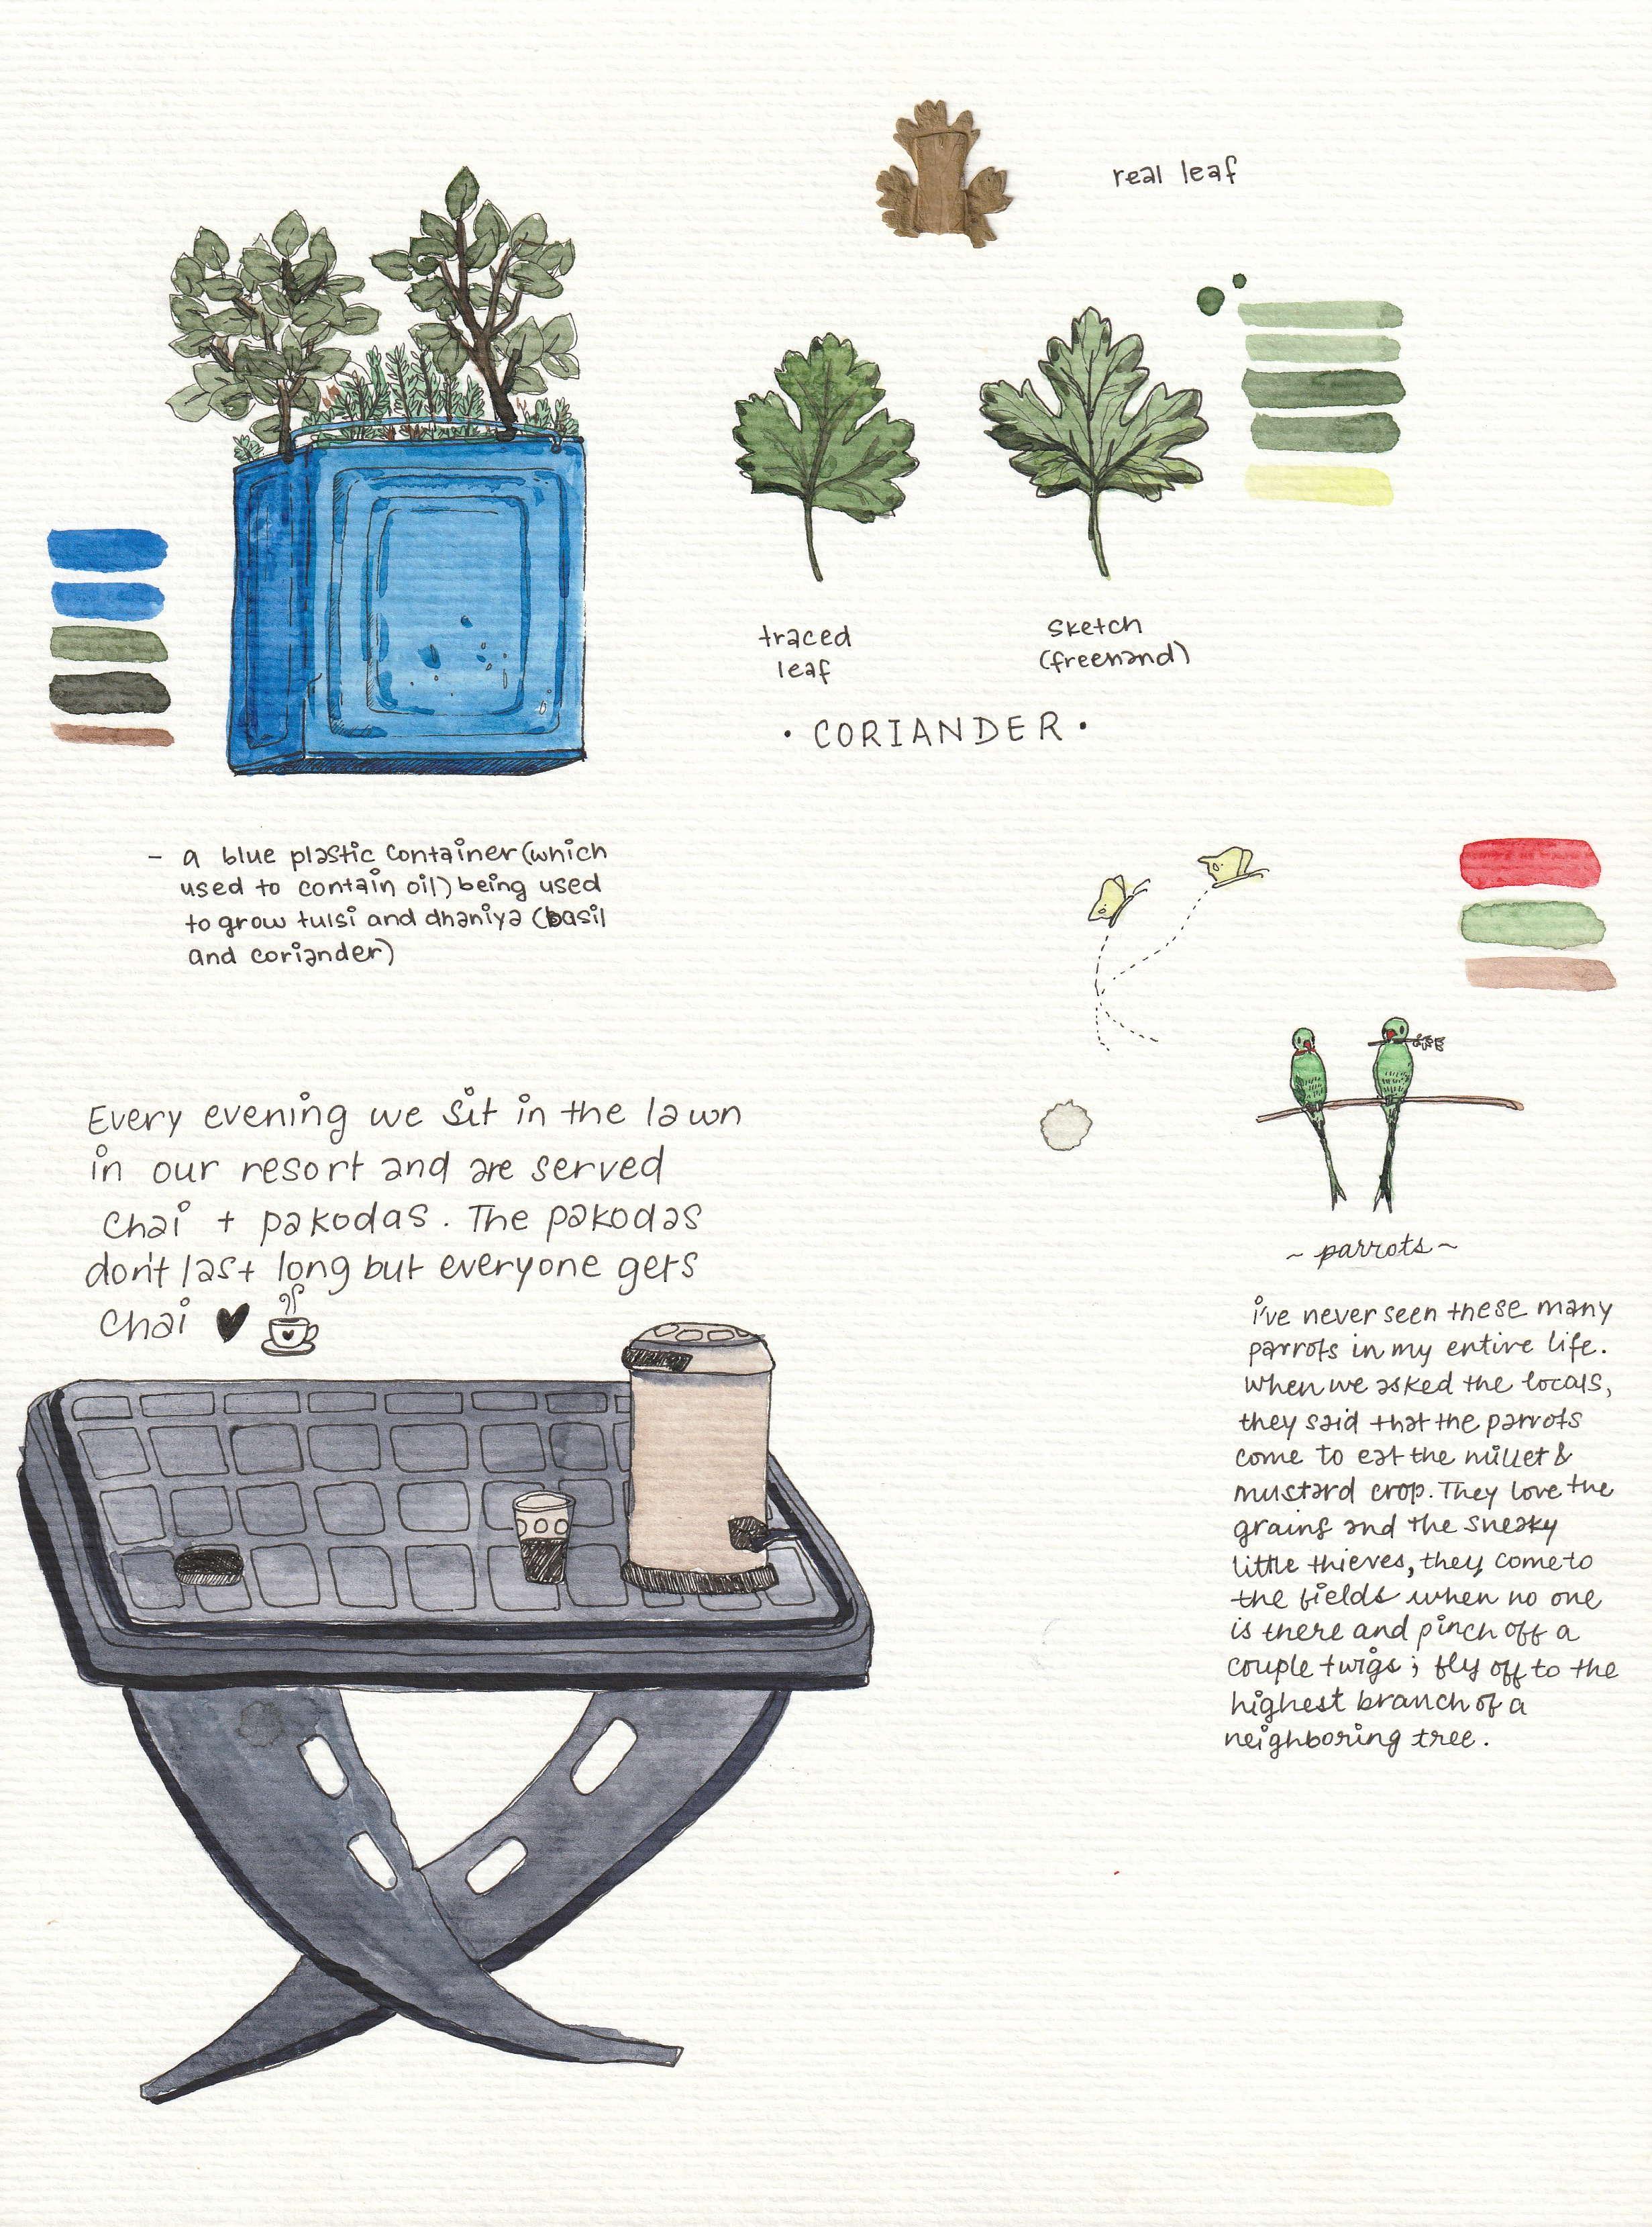 real leaf
traced
leaf
sketch
(freehand)
• CORIANDER •
- a blue plastic container (which
used to contain oil) being used
to grow tulsi and dhaniya (basil
and coriander)
Every evening we sit in the lawn
in our resort and are served
chai + pakodas. The pakodas
don't last long but everyone gets
chai
~ parrots ~
i've never seen these many
parrots in my entire life.
when we asked the locals,
they said that the parrots
come to eat the millet &
mustard crop. They love the
grains and the sneaky
little thieves, they come to
the fields when no one
is there and pinch off a
couple twigs ; fly off to the
highest branch of a
neighboring tree.